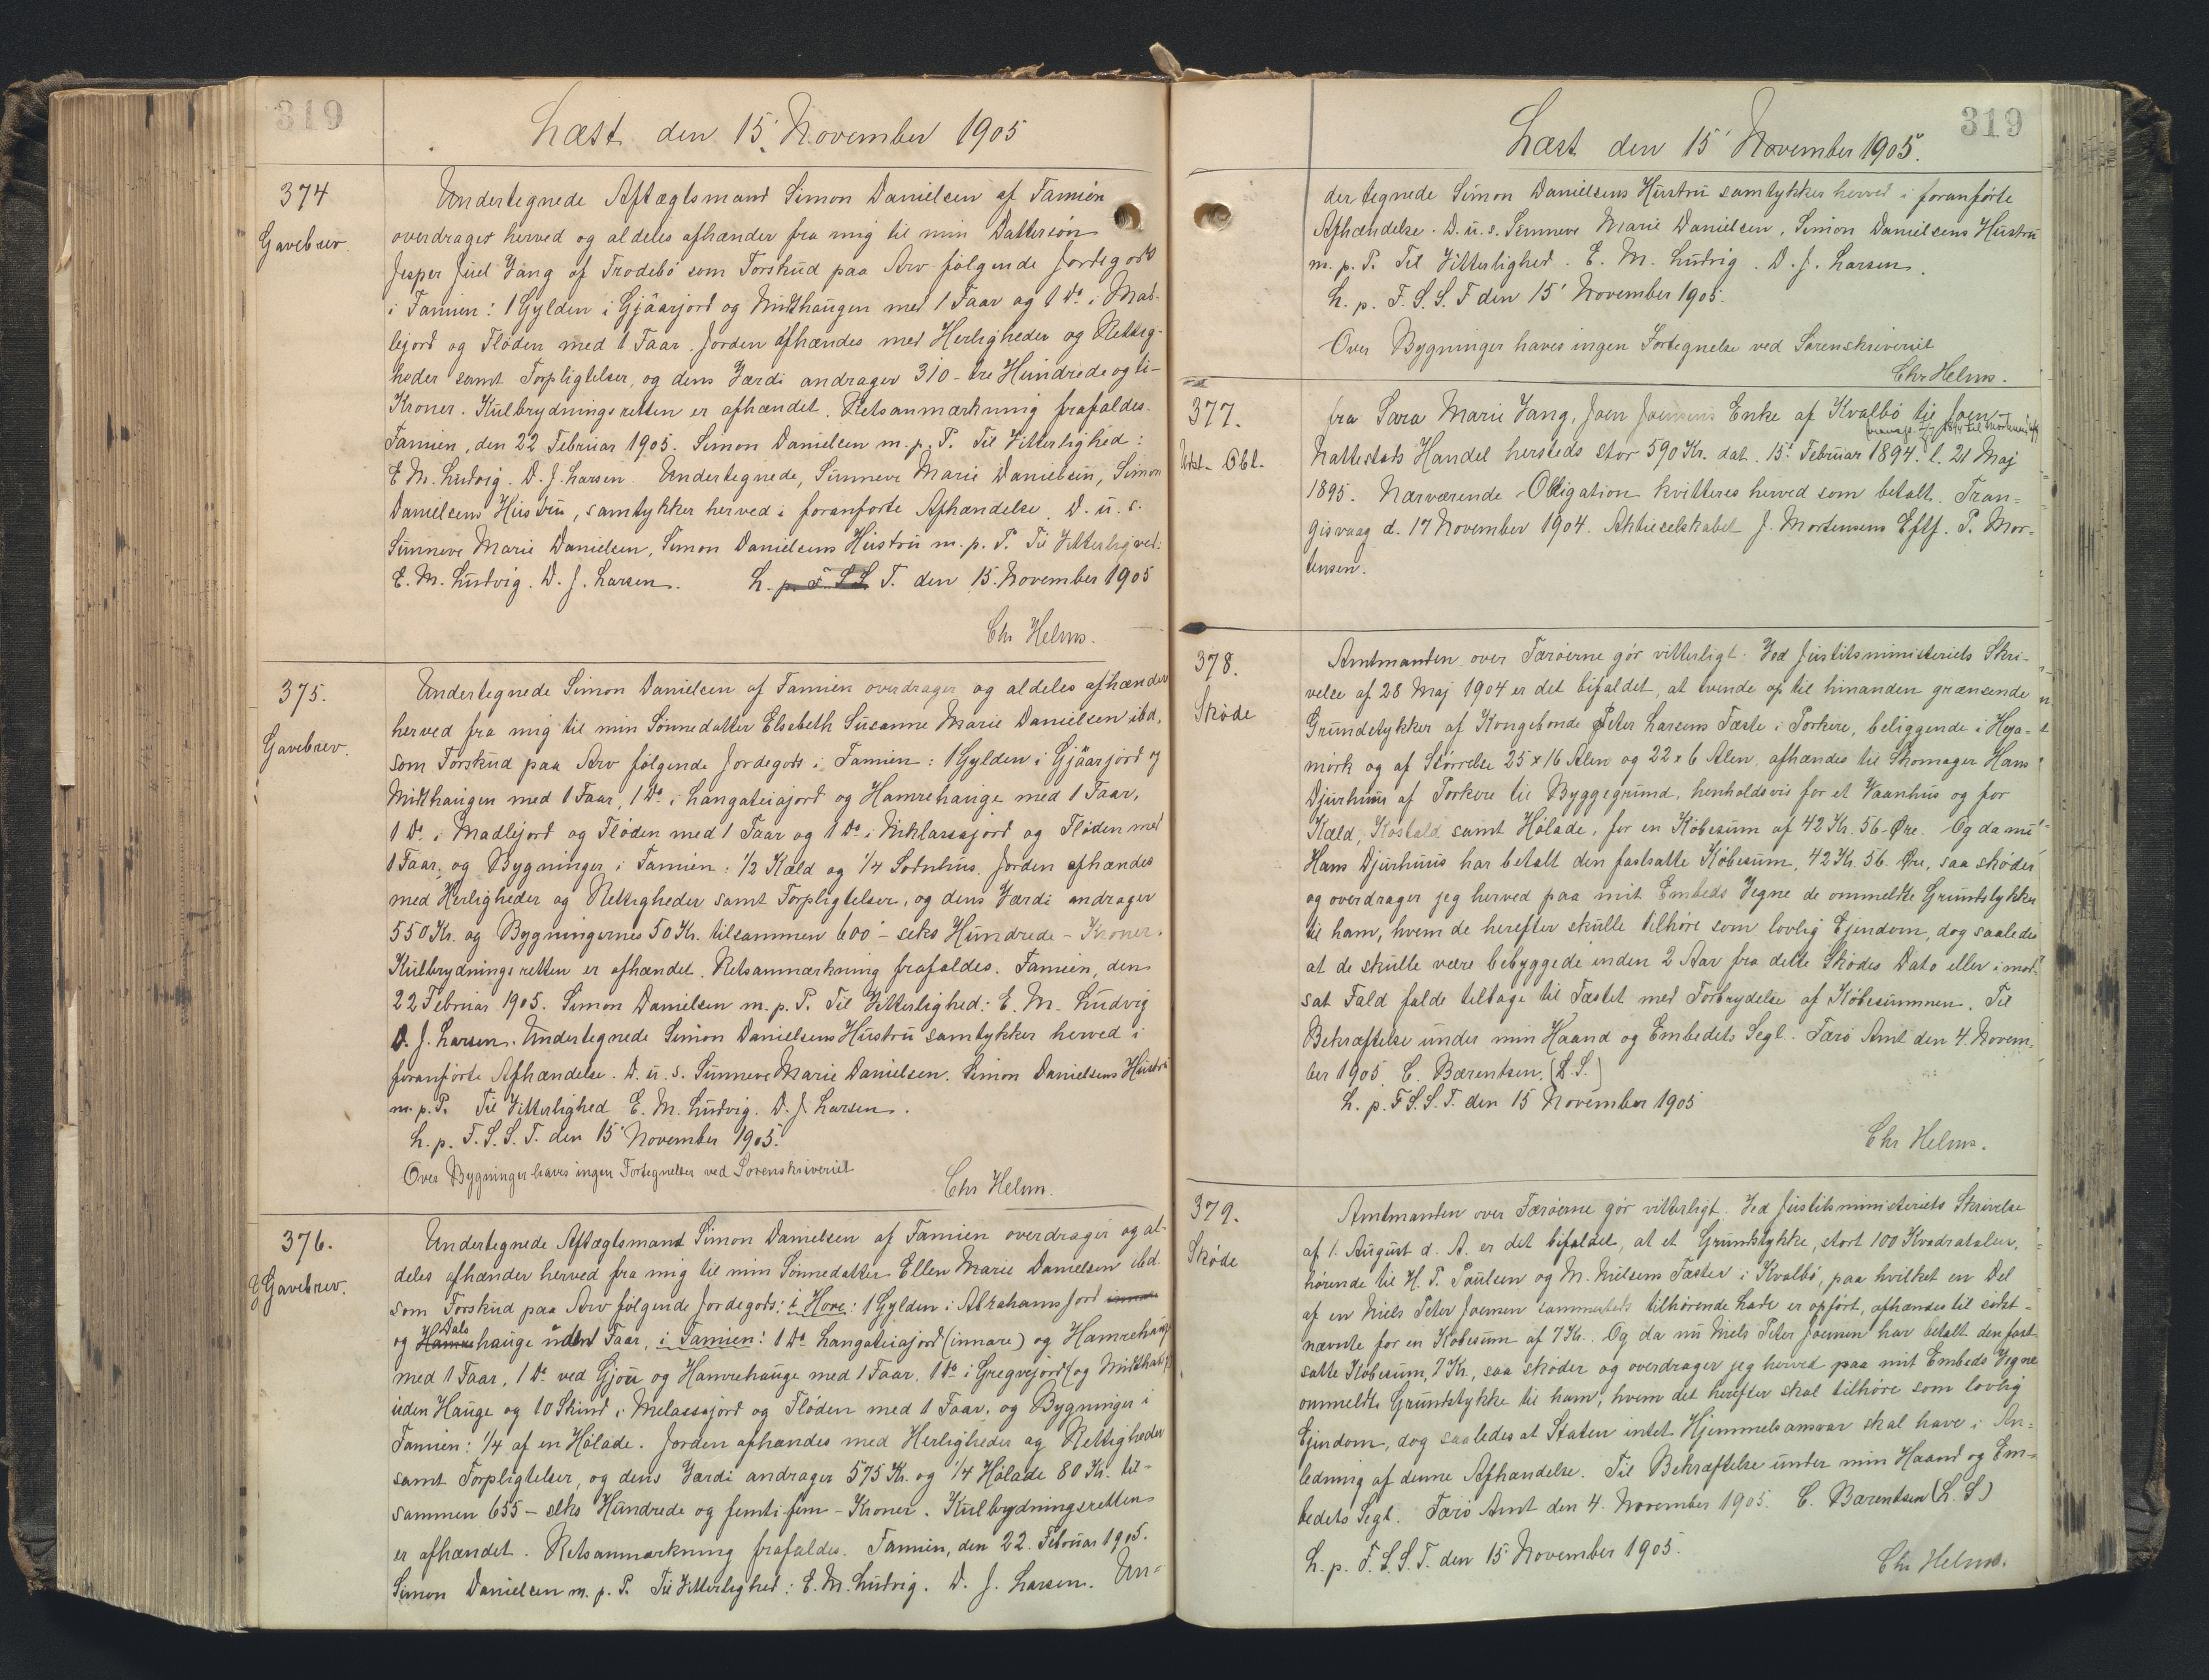 319
Læst den 15' November 1905
374
Gavebrev.
Undertegnede Aftægtsmand Simon Danielsen af Famien
overdrager herved og aldeles afhænder fra mig til min Dattersön
Jesper Juel Vang af Frodebö som Forskud paa Arv fölgende Jordegods
i Famien: 1 Gylden i Gjáarjord og Midthaugen med 1 Faar og 1 Do i Mad-
lejord og Flöden med 1 Faar. Jorden afhændes med Herligheder og Rettig-
heder samt Forpligtelser, og dens Værdi andrager 310 - tre Hundrede og ti -
Kroner. Kulbrydningsretten er afhændet. Retsanmærkning frafaldes.
Famien, den 22 Februar 1905. Simon Danielsen m. p. P. Til Vitterlighed:
E. M. Ludvig. D. J. Larsen. Undertegnede, Sunneve Marie Danielsen, Simon
Danielsens Hustru, samtykker herved i foranförte Afhændelse. D. u. s.
Sunneve Marie Danielsen, Simon Danielsens Hustru m. p. P. Til Vitterlighed:
E. M. Ludvig. D. J. Larsen. L. p. F. S. S. T. den 15. November 1905
Chr Helms.
375.
Gavebrev.
Undertegnede Simon Danielsen af Famien overdrager og aldeles afhænder
herved fra mig til min Sönnedatter Elsebeth Susanne Marie Danielsen ibd,
som Forskud paa Arv fölgende Jordegods i Famien: 1 Gylden i Gjáarjord og
Midthaugen med 1 Faar, 1 Do i Langateiajord og Hamrehauge med 1 Faar,
1 Do i Madlejord og Flöden med 1 Faar og 1 Do i Niklassajord og Flöden med
1 Faar, og Bygninger i Famien: 1/2 Kæld og 1/4 Sodnhus. Jorden afhændes
med Herligheder og Rettigheder samt Forpligtelser, og dens Værdi andrager
550 Kr. og Bygningernes 50 Kr. tilsammen 600 - seks Hundrede - Kroner.
Kulbrydningsretten er afhændet. Retsanmærkning frafaldes. Famien, den
22 Februar 1905. Simon Danielsen m. p. P. Til Vitterlighed: E. M. Ludvig
D. J. Larsen. Undertegnede Simon Danielsens Hustru samtykker herved i
foranförte Afhændelse. D. u. s. Sunneve Marie Danielsen. Simon Danielsens Hustru
m. p. P. Til Vitterlighed E. M. Ludvig. D. J. Larsen.
L. p. F. S. S. T. den 15' November 1905.
Over Bygninger haves ingen Fortegnelser ved Sorenskriveriet
Chr Helms.
376.
Gavebrev.
Undertegnede Aftægtsmand Simon Danielsen af Famien overdrager og al-
deles afhænder herved fra mig til min Sönnedatter Ellen Marie Danielsen ibd.
som Forskud paa Arv fölgende Jordegods: i Hove: 1 Gylden i Abrahams Jord
og Dalshauge uden Faar, i Famien: 1 Do Langateiajord (innare) og Hamrehauge
med 1 Faar, 1 Do ved Gjou og Hamrehauge med 1 Faar, 1 Do i Gregvejord (og Midthauge)
uden Hauge og 10 Skind i Melassajord og Flöden med 1 Faar, og Bygninger i
Famien: 1/4 af en Hölade. Jorden afhændes med Herligheder og Rettigheder
samt Forpligtelser, og dens Værdi andrager 575 Kr. og 1/4 Hölade 80 Kr. til-
sammen 655 - seks Hundrede og femti fem - Kroner. Kulbrydningsretten
er afhændet. Retsanmærkning frafaldes. Famien, den 22. Februar 1905.
Simon Danielsen m. p. P. Til Vitterlighed: E. M. Ludvig. D. J. Larsen. Un-
319
Læst den 15' November 1905.
dertegnede Simon Danielsens Hustru samtykker herved i foranförte
Afhændelse. D. u. s. Sunneve Marie Danielsen, Simon Danielsens Hustru
m. p. P. Til Vitterlighed. E. M. Ludvig. D. J. Larsen.
L. p. F. S. S. T den 15' November 1905.
Over Bygninger haves ingen Fortegnelse ved Sorenskriveriet
Chr Helms.
377.
Udsl. Obl.
fra Sara Marie Vang, Joen Joensens Enke af Kvalbö til Joen
Nattestads Handel hersteds stor 590 Kr. dat. 15' Februar 1894. l. 21 Maj
1895. Nærværende Obligation kvitteres herved som betalt. Tran-
gisvaag d. 17 November 1904. Aktieselskabet J. Mortensens Eftf. P. Mor-
tensen.
378.
Sköde
Amtmanden over Færöerne gör vitterligt: Ved Justitsministeriets Skri-
velse af 28 Maj 1904 er det bifaldet, at tvende op til hinanden grænsende
Grundstykker af Kongsbonde Peter Larsens Fæste i Porkere, beliggende i Heja-
mörk og af Störrelse 25 x 16 Alen og 22 x 6 Alen, afhændes til Skomager Hans
Djurhuus af Porkere til Byggegrund, henholdsvis for et Vaanhus og for
Kæld, Kostald samt Hölade, for en Köbesum af 42 Kr. 56 Øre. Og da nu
Hans Djurhuus har betalt den fastsatte Köbesum, 42 Kr. 56 Øre, saa sköder
og overdrager jeg herved paa mit Embeds Vegne de ommeldte Grundstykker
til ham, hvem de herefter skulle tilhöre som lovlig Ejendom, dog saaledes
at de skulle være bebyggede inden 2 Aar fra dette Sködes Dato eller i mod-
sat Fald falde tilbage til Fæstet med Forbrydelse af Köbesummen. Til
Bekræftelse under min Haand og Embedets Segl. Færö Amt den 4. Novem-
ber 1905. C. Bærentsen. (L. S.)
L. p. F. S. S. T. den 15 November 1905
Chr Helms.
379.
Sköde
Amtmanden over Færöerne gör vitterligt. Ved Justitsministeriets Skrivelse
af 1. August d. A. er det bifaldet, at et Grundstykke, stort 100 Kvadratalen,
hörende til H. P. Paulsen og M. Nielsens Fæster i Kvalbö, paa hvilket en Del
af en Niels Peter Joensen sammesteds tilhörende Lade er opfört, afhændes til sidst-
nævnte for en Köbesum af 7 Kr. Og da nu Niels Peter Joensen har betalt den fast
satte Köbesum, 7 Kr., saa sköder og overdrager jeg herved paa mit Embeds Vegne
ommeldte Grundstykke til ham, hvem det herefter skal tilhöre som lovlig
Ejendom, dog saaledes at Staten intet Hjemmelsansvar skal have i An-
ledning af denne Afhændelse. Til Bekræftelse under min Haand og Em-
bedets Segl. Færö Amt den 4. November 1905. C. Bærentsen (L. S)
L. p. F. S. S. T. den 15' November 1905.
Chr Helms.